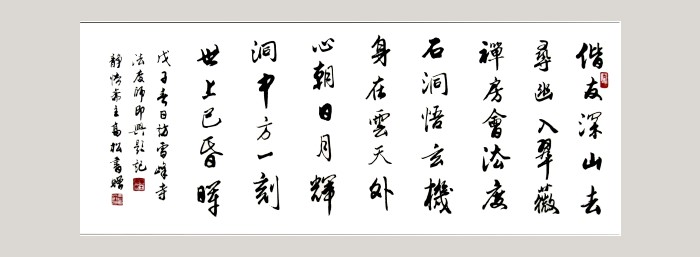 偕友深山去
尋幽入翠薇
禪房會法度
石洞悟玄機
身在雲天外
心朝日月輝
洞中方一刻
世上已昏暉
戊子春日訪雪峰寺
法度師即興題記
靜悟齋主高松書贈